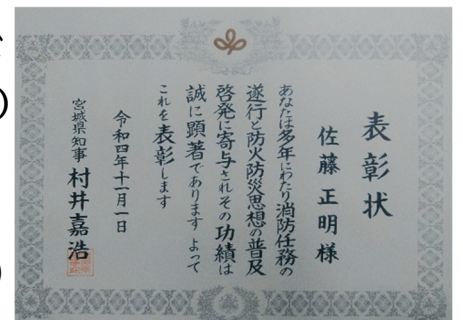 表彰状
佐藤正明様
あなたは多年にわたり消防任務の
遂行と防火防災思想の普及
啓発に寄与されその功績は
誠に顕著であります よって
これを表彰します
令和四年十一月一日
宮城県知事 村井嘉浩